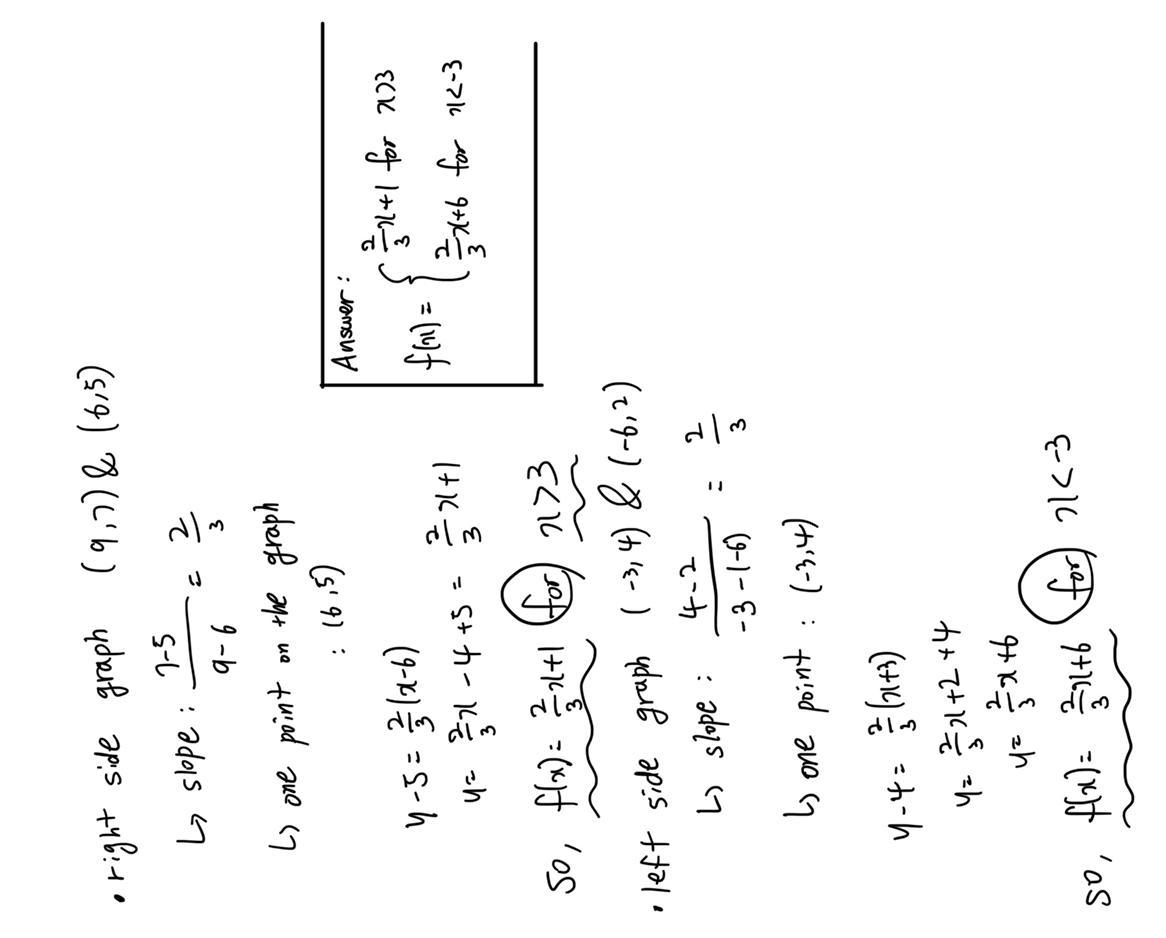 • right side graph (9,7) & (6,5)
↳ slope : 7-5/9-6 = 2/3
↳ one point on the graph
: (6,5)
y-5 = 2/3(x-6)
y= 2/3x -4 +5 = 2/3x+1
so, f(x)= 2/3x+1 for x>3
• left side graph (-3,4) & (-6,2)
↳ slope : 4-2/-3-(-6) = 2/3
↳ one point : (-3,4)
y-4= 2/3(x+3)
y= 2/3x+2+4
y= 2/3x+6
so, f(x)= 2/3x+6 for x<-3
Answer:
f(x) = { 2/3x+1 for x>3
2/3x+6 for x<-3